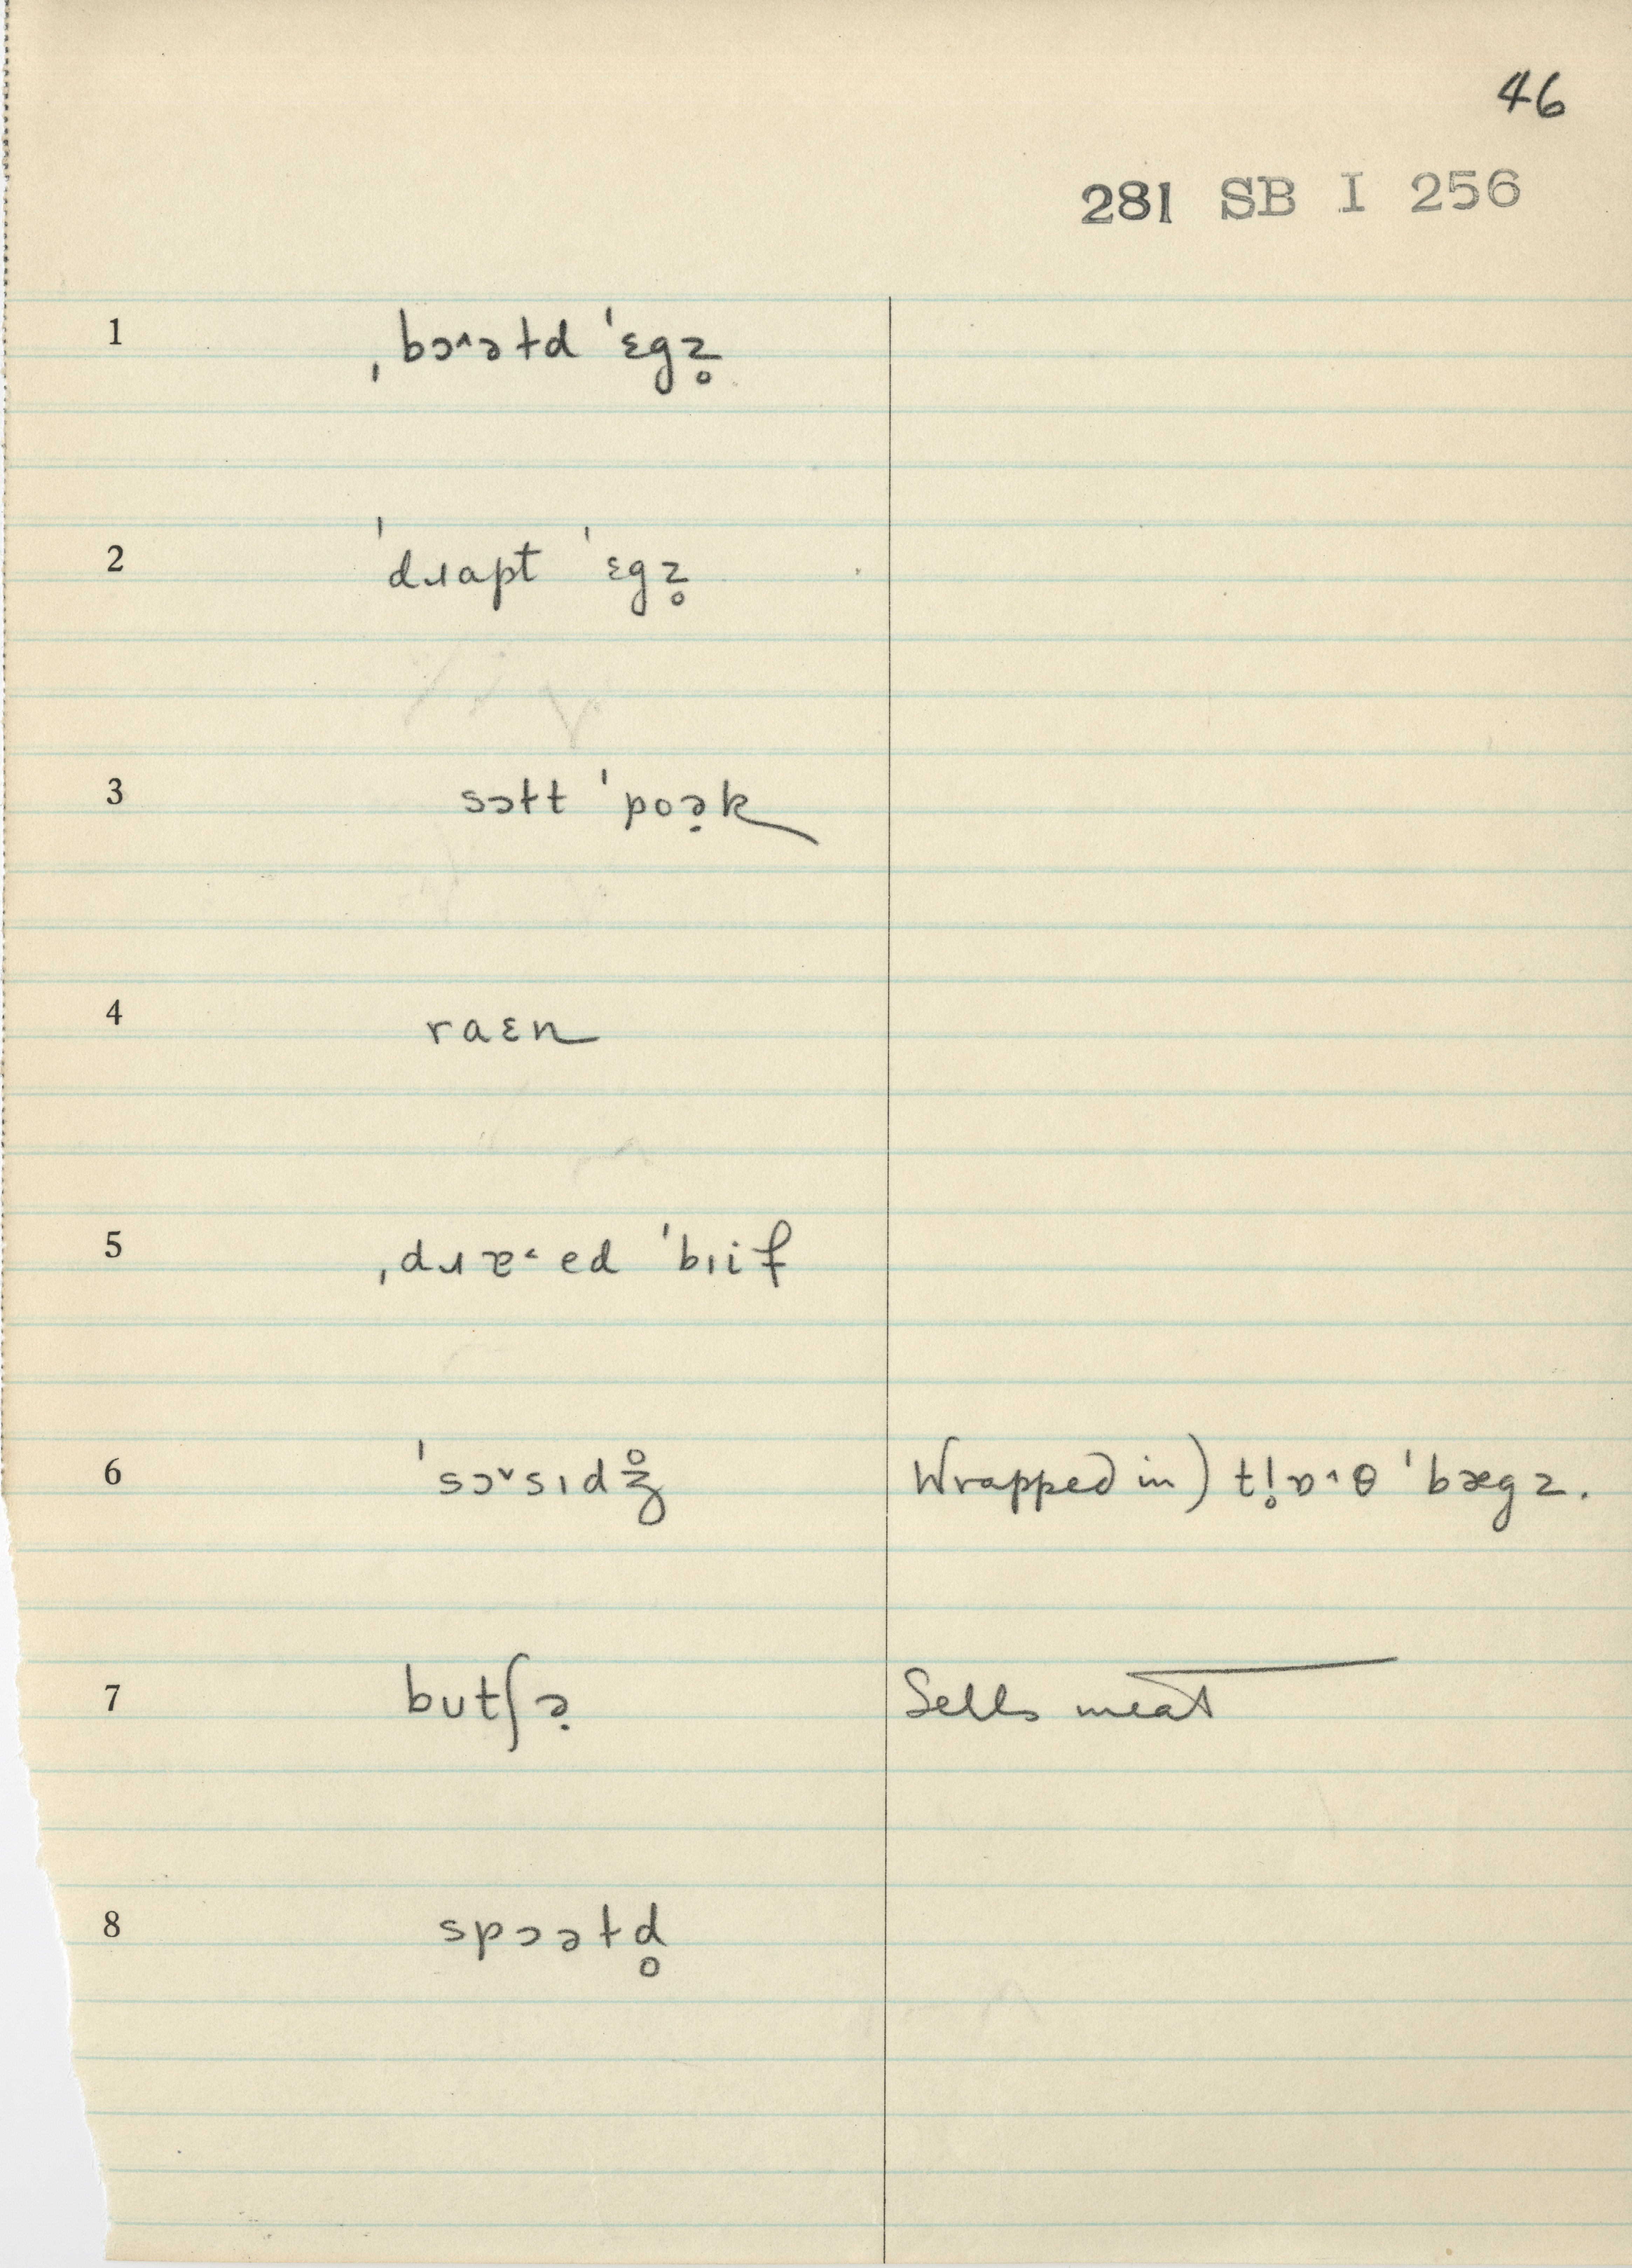 46
281 SB I 256
1 ˌbɔ˄əɫd ˈɛgz̥
2 ˈdɹɑpt ˈɛgz̥
3 sɔɫt ˈpoə̣k
4 raɛn
5 ˌdɹɐ˂ed ˈbɪif
6 ˈsɔ˅sɪdʒ̊ Wrapped in) tl̥ɒ˄θ ˈbægz.
7 butʃə̣ Sells meat
8 spɔəɫd̥